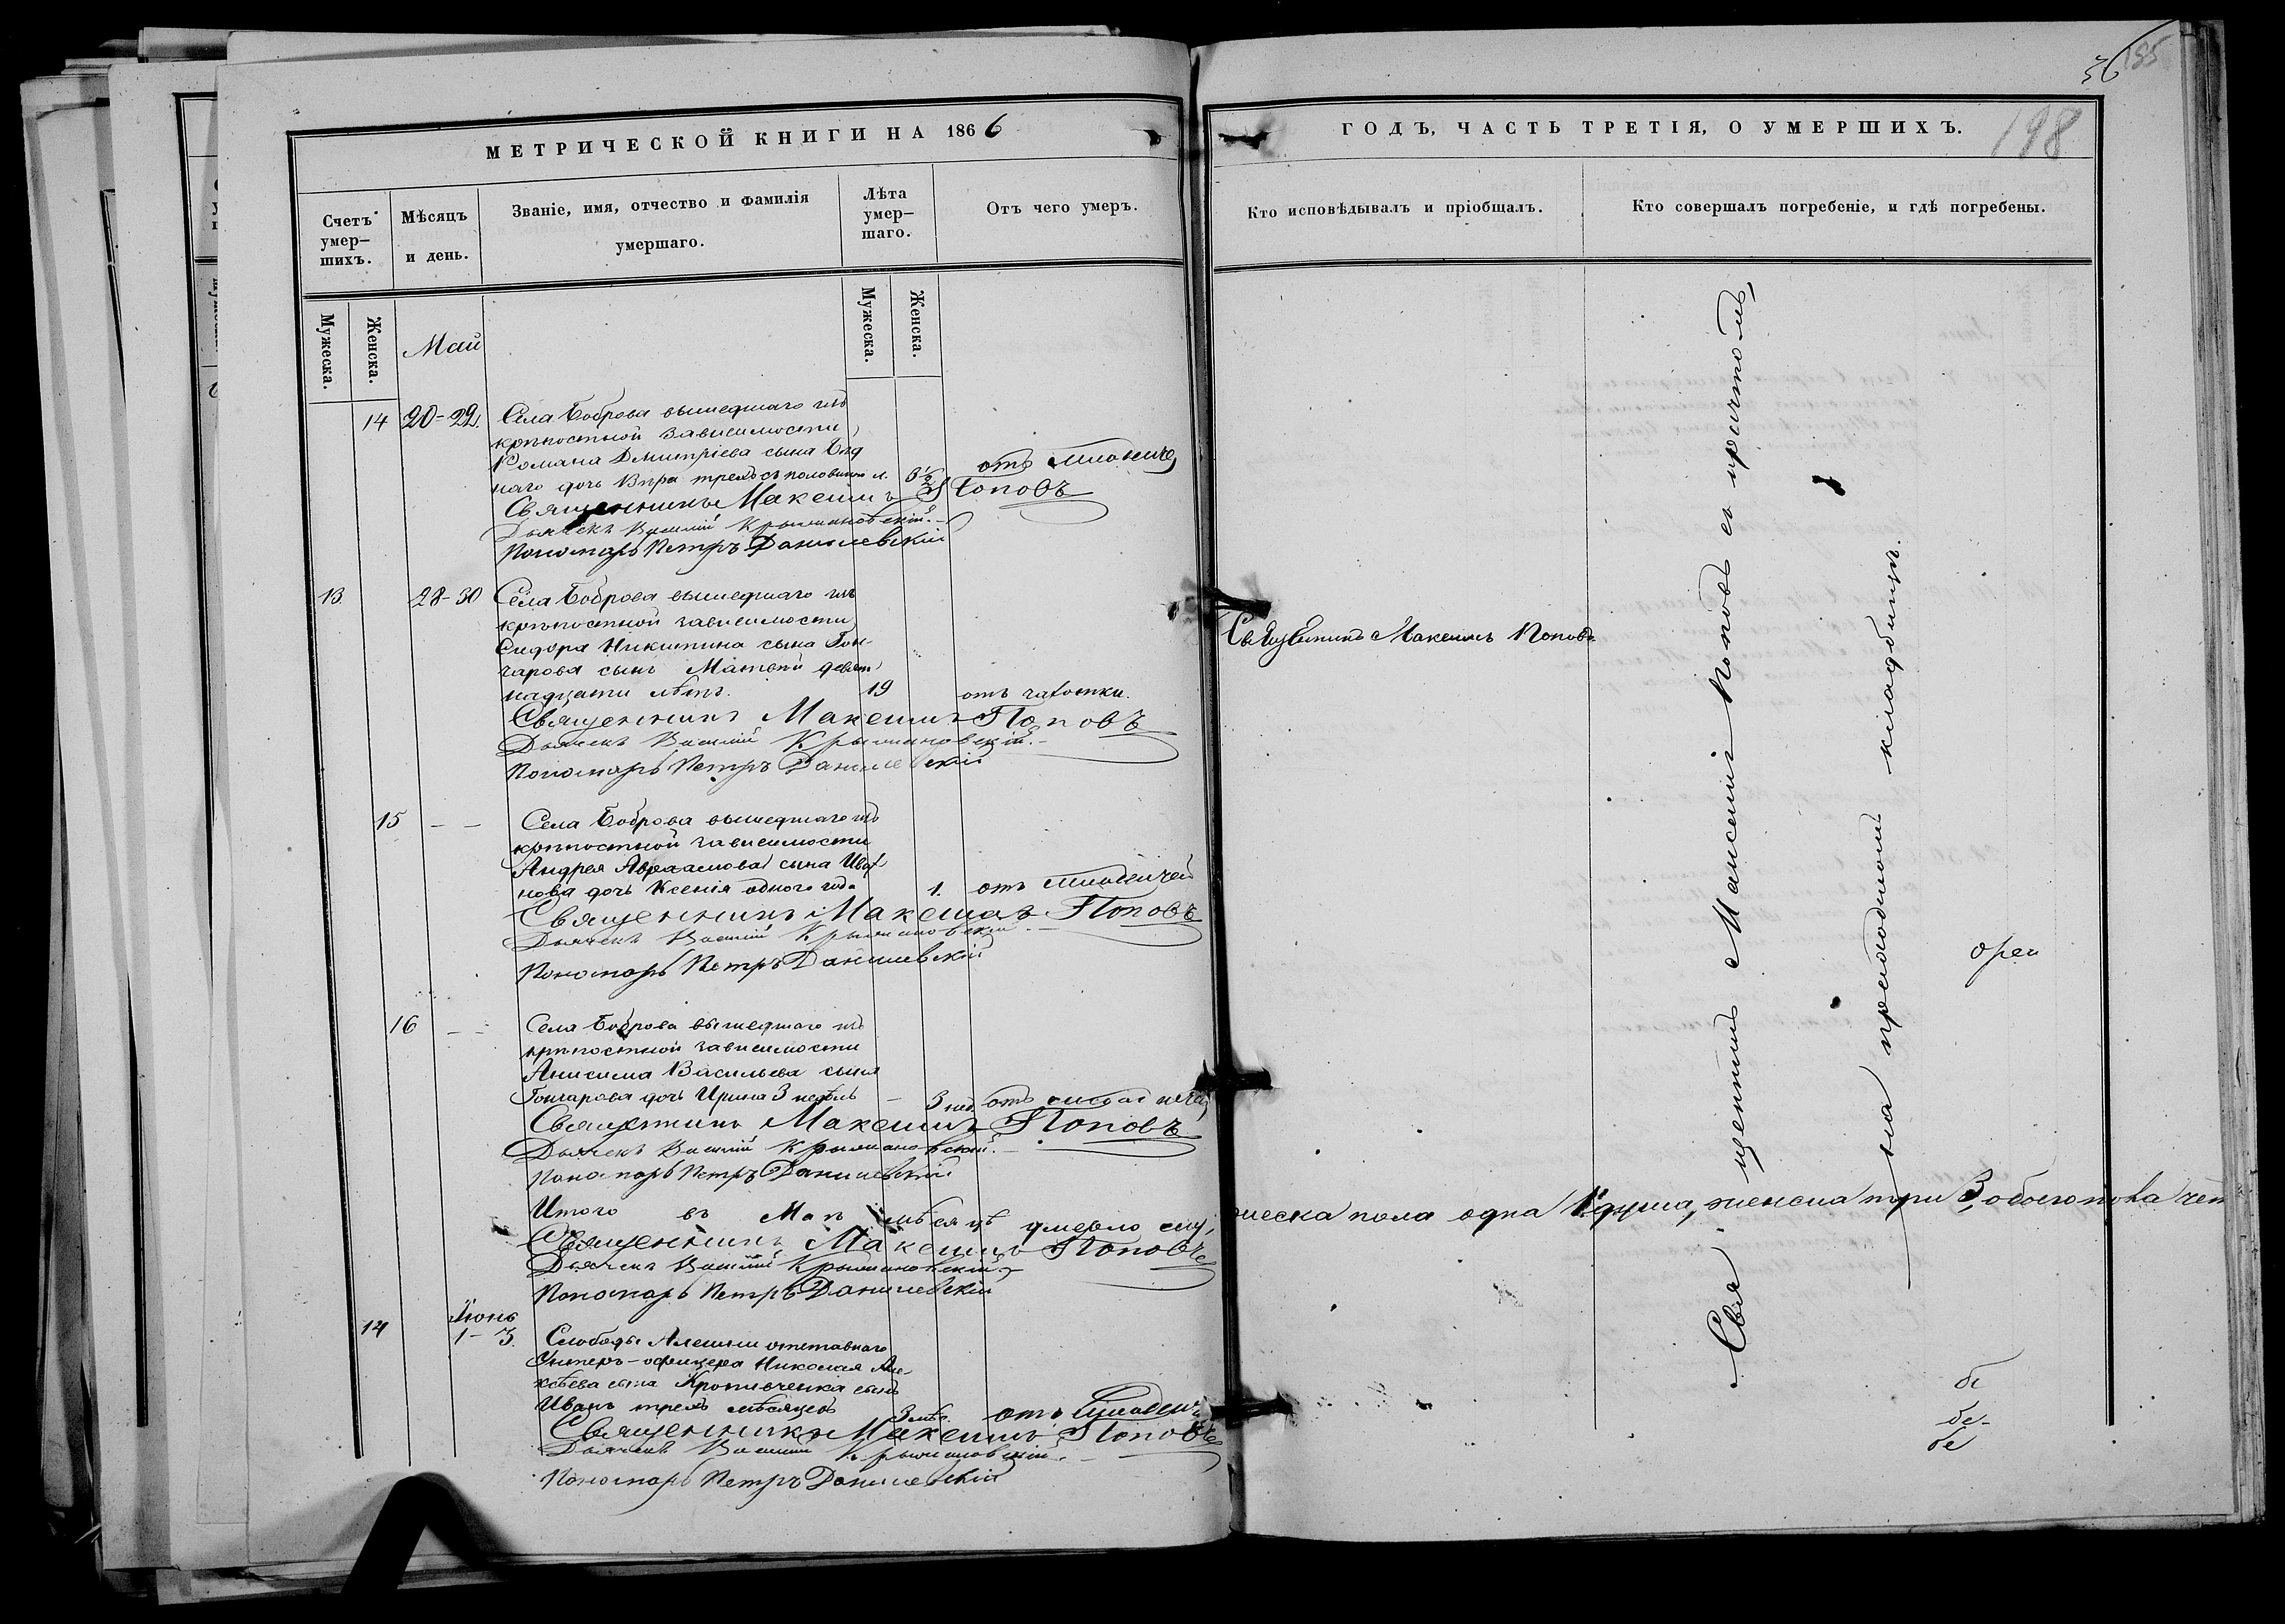 МЕТРИЧЕСКОЙ КНИГИ НА 1866
Счетъ умер-шихъ.
Мѣсяцъ и день.
Званіе, имя, отчество и фамилія умершаго.
Лѣта умер-шаго.
Отъ чего умеръ.
Мужеска.
Женска.
Мужеска.
Женска.
Май
14 20-22. Села Боброва вышедшаго изъ
крѣпостной зависимости
Романа Дмитріева сына
наго дочь Вѣра трехъ съ половиною л. 3½ отъ
Священникъ Максимъ Поповъ
Дьячекъ Василій Крыжановскій.
Пономарь Петръ Данилевскій
13. 28-30 Села Боброва вышедшаго изъ
крѣпостной зависимости
Сидора Никитина сына Гон-
чарова сынъ Матвѣй девят-
надцати лѣтъ. 19 отъ чахотки.
Священникъ Максимъ Поповъ
Дьячекъ Василій Крыжановскій.
Пономарь Петръ Данилевскій
15 — — Села Боброва вышедшаго изъ
крѣпостной зависимости
Андрея Авраамова сына Ива-
нова дочь Ксенія одного года 1. отъ
Священникъ Максимъ Поповъ
Дьячекъ Василій Крыжановскій.
Пономарь Петръ Данилевскій
16 — — Села Боброва вышедшаго изъ
крѣпостной зависимости
Анисима Васильева сына
Гончарова дочь Ирина 3 недѣль — 3 нед. отъ
Священникъ Максимъ Поповъ
Дьячекъ Василій Крыжановскій.
Пономарь Петръ Данилевскій
Итого въ Маѣ мѣсяцѣ умерло му-
Священникъ Максимъ Поповъ
Дьячекъ Василій Крыжановскій
Пономарь Петръ Данилевскій
Іюнь
14 1-3. Слободы Алешни отставнаго
Унтеръ-офицера Николая Але-
ксѣева сына сынъ
Иванъ трехъ мѣсяцевъ 3 мѣс. отъ
Священникъ Максимъ Поповъ
Дьячекъ Василій Крыжановскій.
Пономарь Петръ Данилевскій
36 155
ГОДЪ, ЧАСТЬ ТРЕТІЯ, О УМЕРШИХЪ.
198
Кто исповѣдывалъ и пріобщалъ.
Кто совершалъ погребеніе, и гдѣ погребены.
Священникъ Максимъ Поповъ
Священникъ Максимъ Поповъ съ причтомъ,
на приходскомъ кладбищѣ.
жеска пола одна 1 душа, женска три 3, обоего пола чет